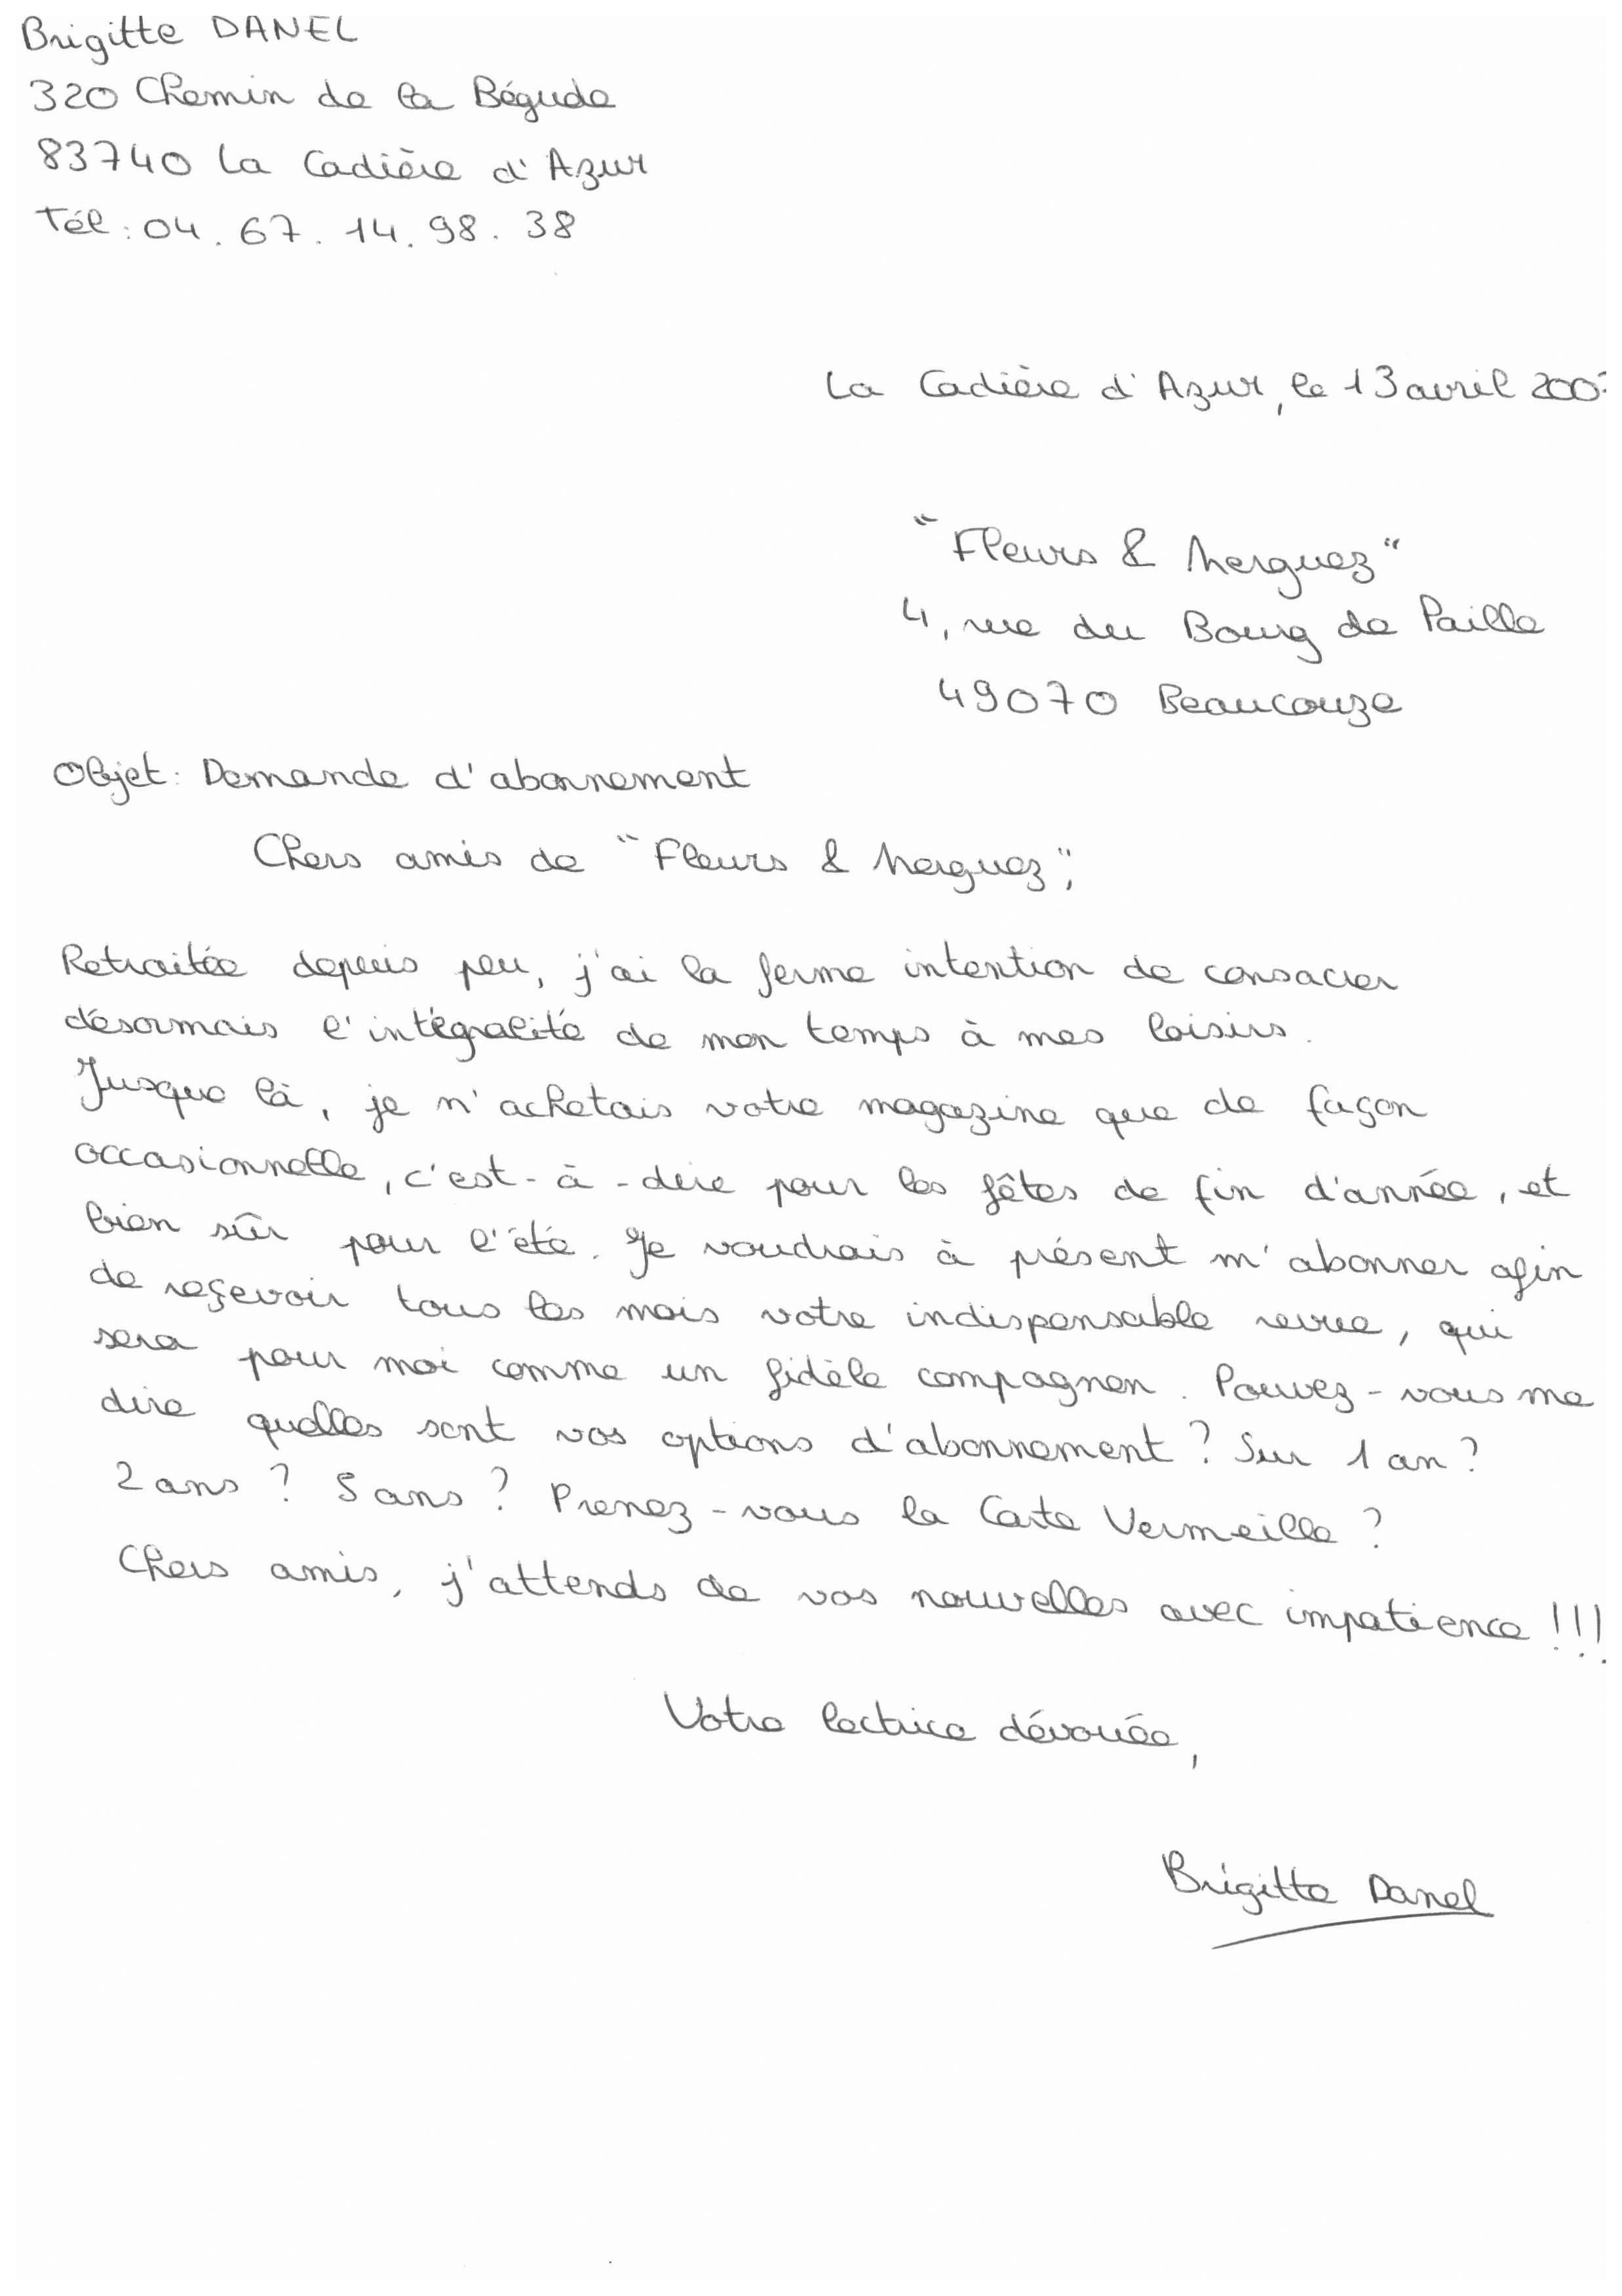 Brigitte DANEL
320 Chemin de la Bégude
83740 La Cadière d'Azur
Tél : 04. 67. 14. 98. 38
La Cadière d'Azur, le 13 avril
"Fleurs & Merguez"
4, rue du Bourg de Paille
49070 Beaucouze
Objet : Demande d'abonnement
Chers amis de "Fleurs & Merguez",
Retraitée depuis peu, j'ai la ferme intention de consacrer
désormais l'intégralité de mon temps à mes loisirs.
Jusque là, je n'achetais votre magazine que de façon
occasionnelle, c'est-à-dire pour les fêtes de fin d'année, et
bien sûr pour l'été. Je voudrais à présent m'abonner afin
de reçevoir tous les mois votre indispensable revue, qui
sera pour moi comme un fidèle compagnon. Pouvez-vous me
dire quelles sont vos options d'abonnement ? Sur 1 an ?
2 ans ? 5 ans ? Prenez-vous la Carte Vermeille ?
Chers amis, j'attends de vos nouvelles avec impatience !!!
Votre lectrice dévouée,
Brigitte Danel